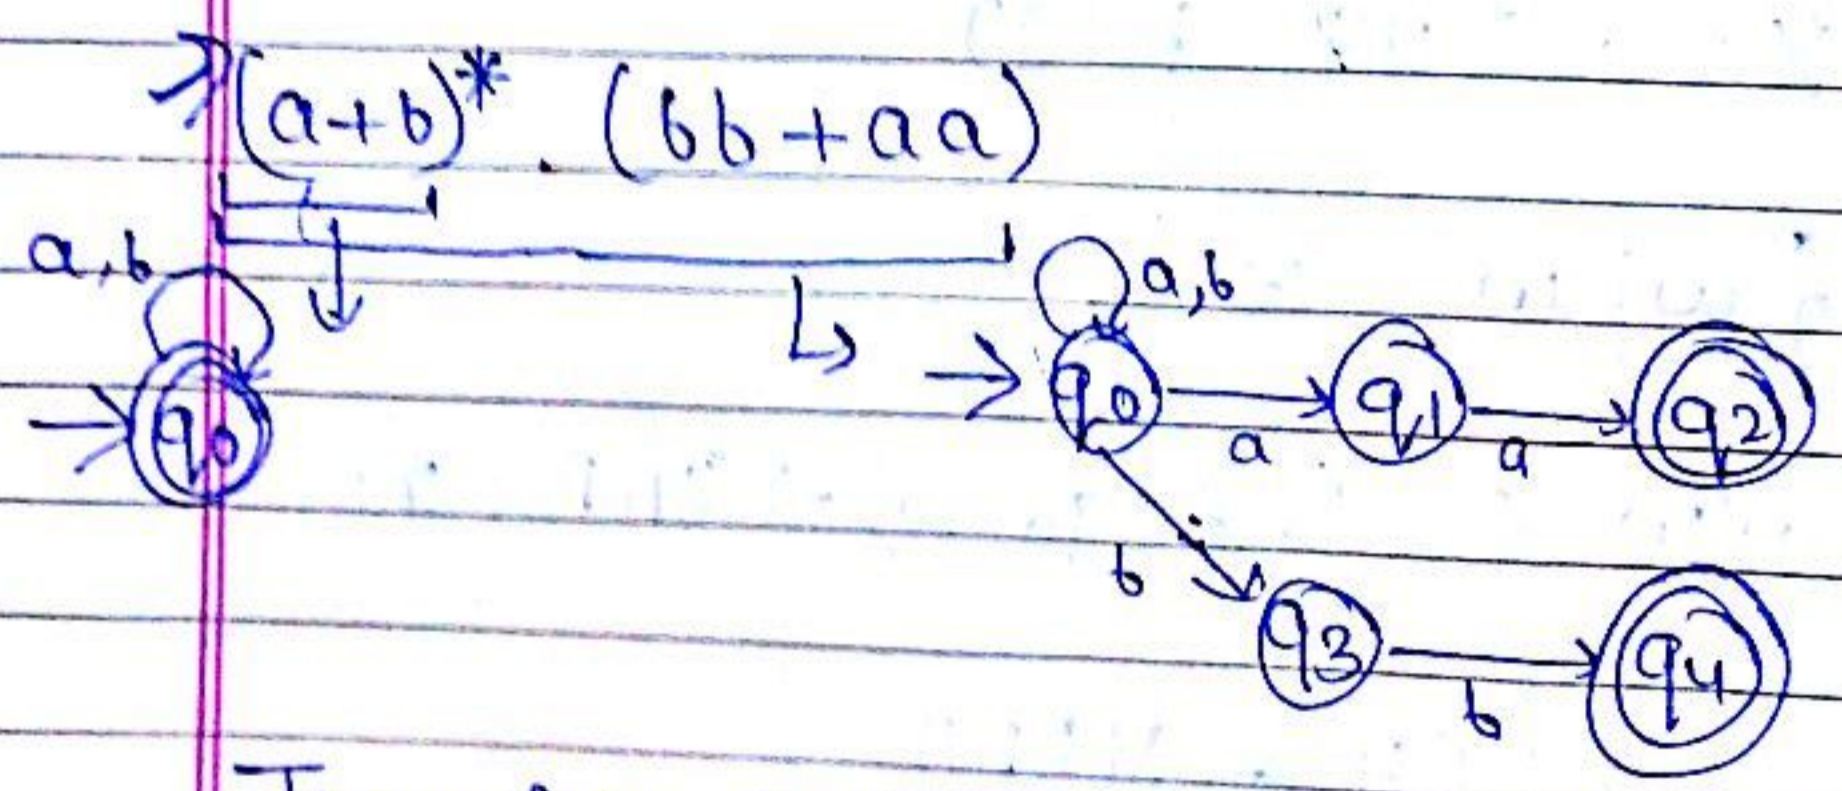 (a+b)* . (bb+aa)
a,b
a,b
q0
q0
a
q1
a
q2
b
q3
b
q4